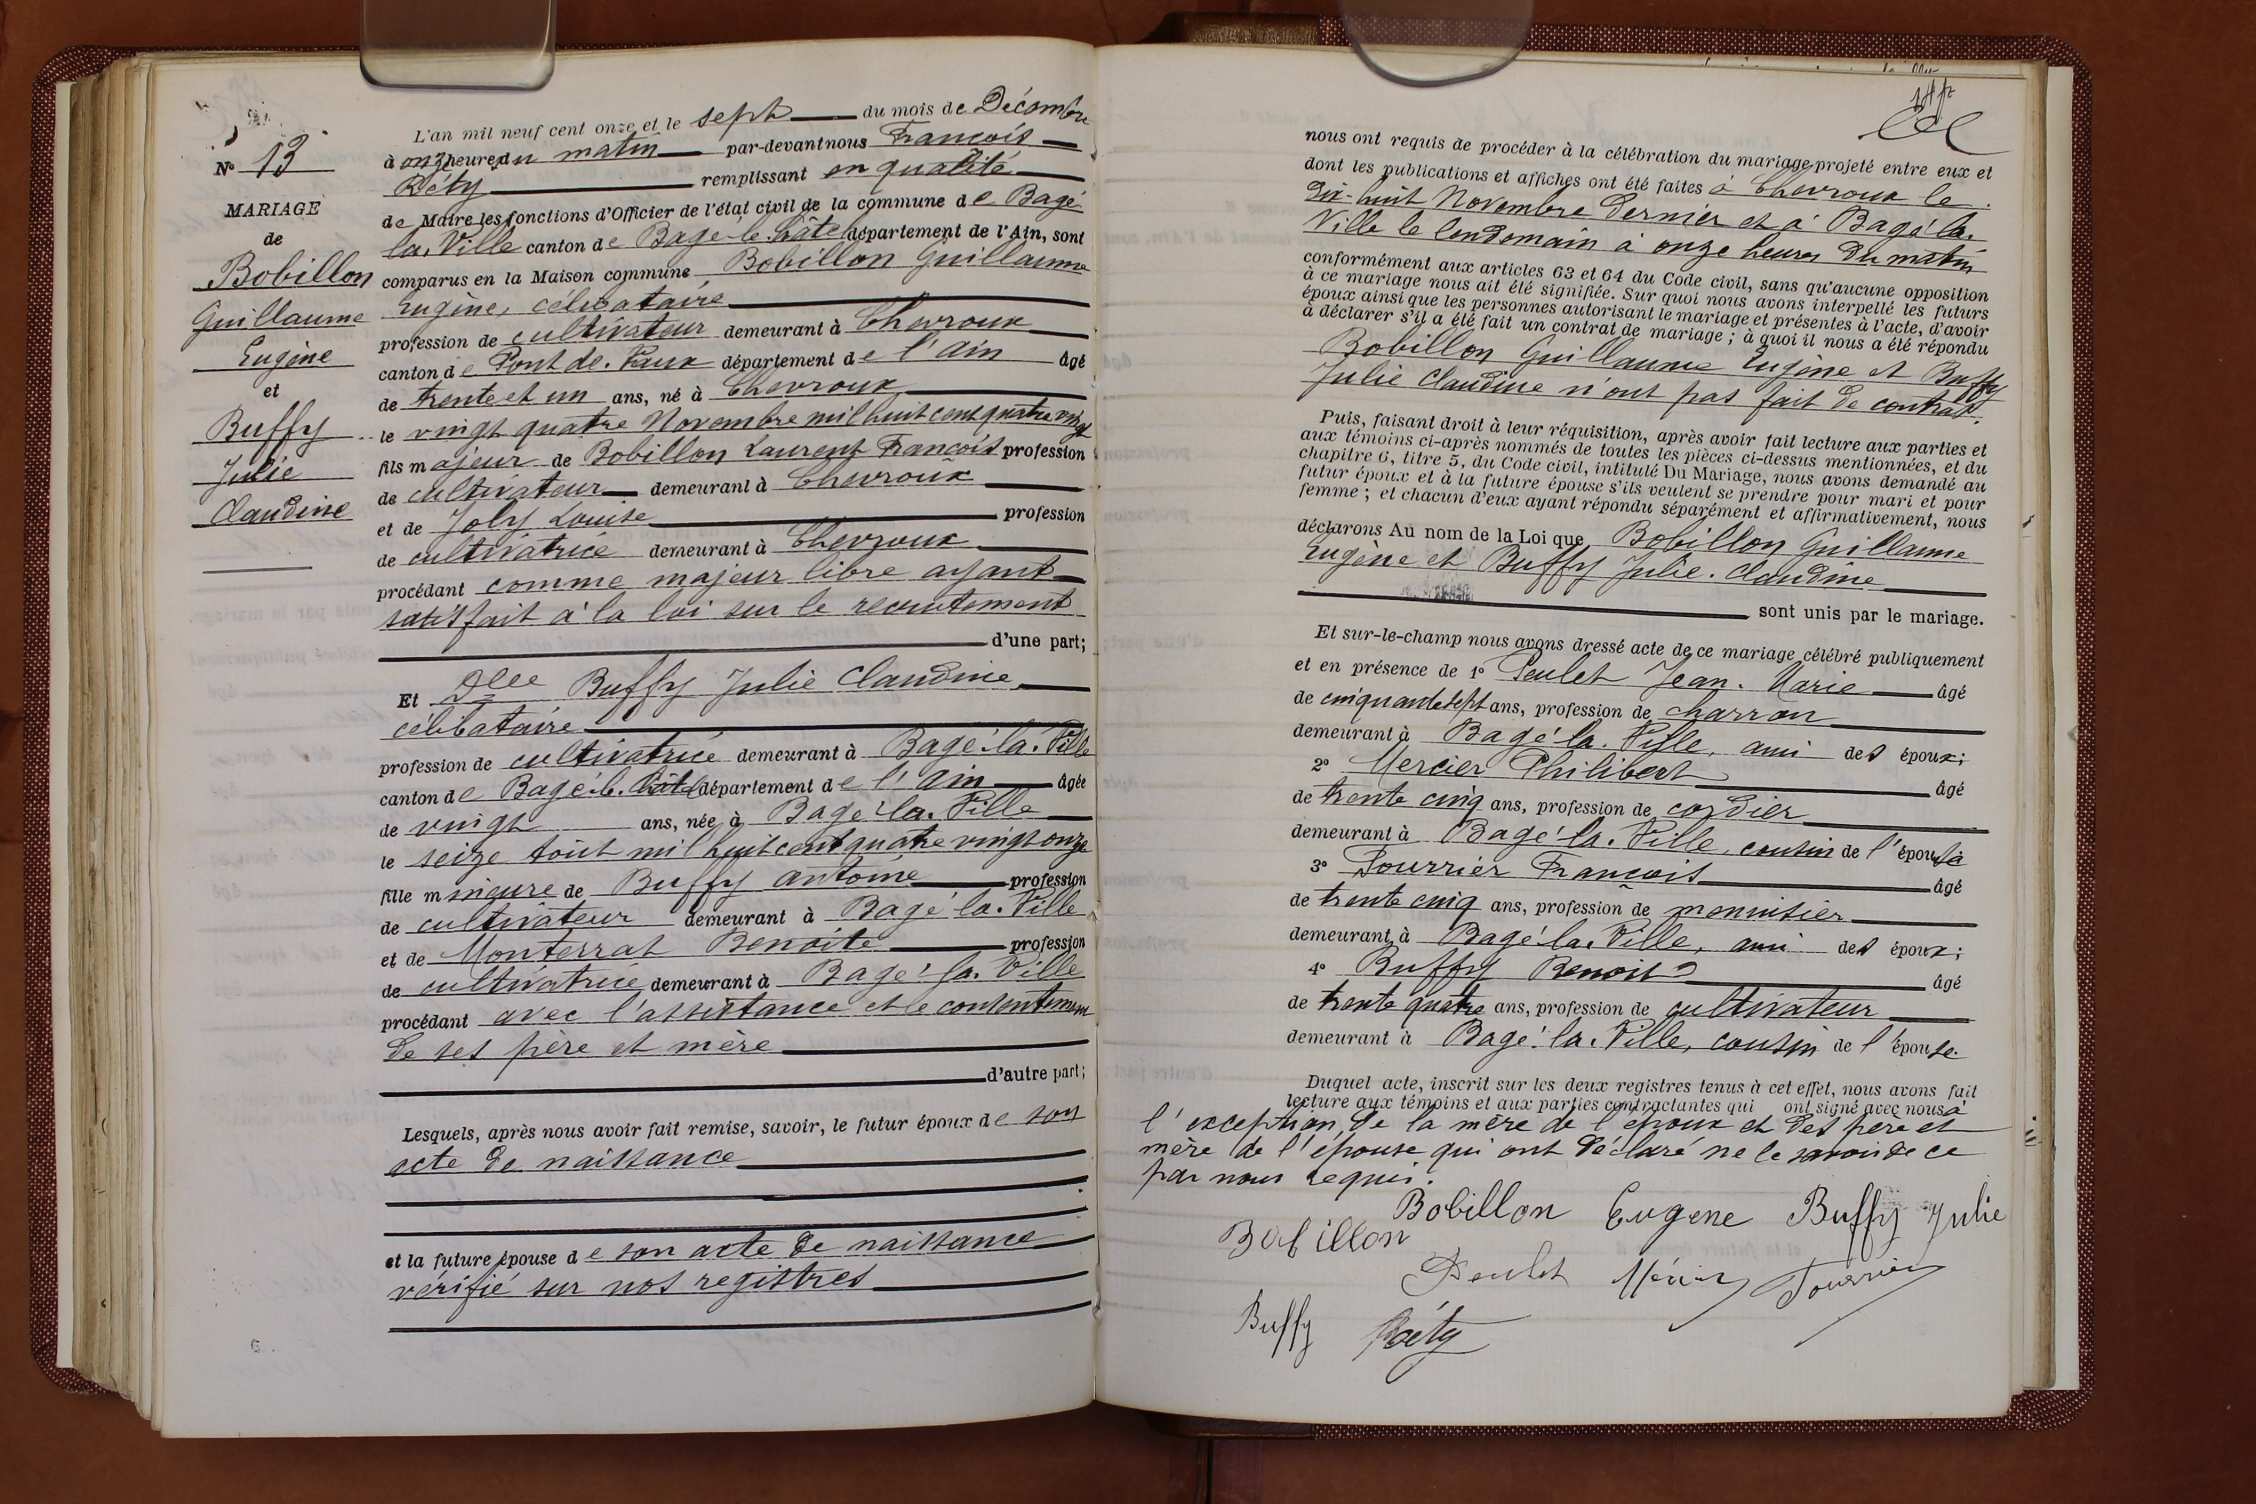 N° 13
MARIAGE
de
Bobillon
Guillaume
Eugène
et
Buffy
Julie
Claudine
L'an mil neuf cent onze et le sept du mois de Décembre
à onze heures du matin par-devant nous François
Réty remplissant en qualité
de Maire les fonctions d'Officier de l'état civil de la commune de Bagé
la. Ville canton de Bagé-le-Châtel département de l'Ain, sont
comparus en la Maison commune Bobillon Guillaume
Eugène, célibataire
profession de cultivateur demeurant à Chevroux
canton de Pont de. Vaux département de l'Ain âgé
de trente et un ans, né à Chevroux
le vingt quatre Novembre mil huit cent quatre vingt
fils majeur de Bobillon Laurent François profession
de cultivateur demeurant à Chevroux
et de Joly Louise profession
de cultivatrice demeurant à Chevroux
procédant comme majeur libre ayant
satisfait à la loi sur le recrutement
d'une part;
Et Dlle Buffy Julie Claudine
célibataire
profession de cultivatrice demeurant à Bagé-la. Ville
canton de Bagé-le. Châtel département de l'Ain âgée
de vingt ans, née à Bagé-la. Ville
le seize Août mil huit cent quatre vingt onze
fille mineure de Buffy Antoine profession
de cultivateur demeurant à Bagé-la. Ville
et de Monterrat Benoite profession
de cultivatrice demeurant à Bagé-la. Ville
procédant avec l'assistance et le consentement
de ses père et mère
d'autre part;
Lesquels, après nous avoir fait remise, savoir, le futur époux de son
acte de naissance
et la future épouse de son acte de naissance
vérifié sur nos registres
nous ont requis de procéder à la célébration du mariage projeté entre eux et
dont les publications et affiches ont été faites à Chevroux le
dix-huit Novembre dernier et à Bagé-la.
Ville le lendemain à onze heures du matin
conformément aux articles 63 et 64 du Code civil, sans qu'aucune opposition
à ce mariage nous ait été signifiée. Sur quoi nous avons interpellé les futurs
époux ainsi que les personnes autorisant le mariage et présentes à l'acte, d'avoir
à déclarer s'il a été fait un contrat de mariage; à quoi il nous a été répondu
Bobillon Guillaume Eugène et Buffy
Julie Claudine n'ont pas fait de contrat.
Puis, faisant droit à leur réquisition, après avoir fait lecture aux parties et
aux témoins ci-après nommés de toutes les pièces ci-dessus mentionnées, et du
chapitre 6, titre 5, du Code civil, intitulé Du Mariage, nous avons demandé au
futur époux et à la future épouse s'ils veulent se prendre pour mari et pour
femme; et chacun d'eux ayant répondu séparément et affirmativement, nous
déclarons Au nom de la Loi que Bobillon Guillaume
Eugène et Buffy Julie. Claudine
sont unis par le mariage.
Et sur-le-champ nous avons dressé acte de ce mariage célébré publiquement
et en présence de 1° Peulet Jean. Marie âgé
de cinquante sept ans, profession de charron
demeurant à Bagé-la. Ville, ami des époux;
2° Mercier Philibert âgé
de trente cinq ans, profession de cordier
demeurant à Bagé-la. Ville, cousin de l'épouse
3° Pourrier François âgé
de trente cinq ans, profession de menuisier
demeurant à Bagé-la. Ville, ami des époux;
4° Buffy Benoit âgé
de trente quatre ans, profession de cultivateur
demeurant à Bagé-la. Ville, cousin de l'épouse.
Duquel acte, inscrit sur les deux registres tenus à cet effet, nous avons fait
lecture aux témoins et aux parties contractantes qui ont signé avec nous à
l'exception de la mère de l'époux et des père et
mère de l'épouse qui ont déclaré ne le savoir de ce
par nous requis.
Bobillon Eugene Buffy Julie
Bobillon
Peulet Mercier Pourrier
Buffy Réty